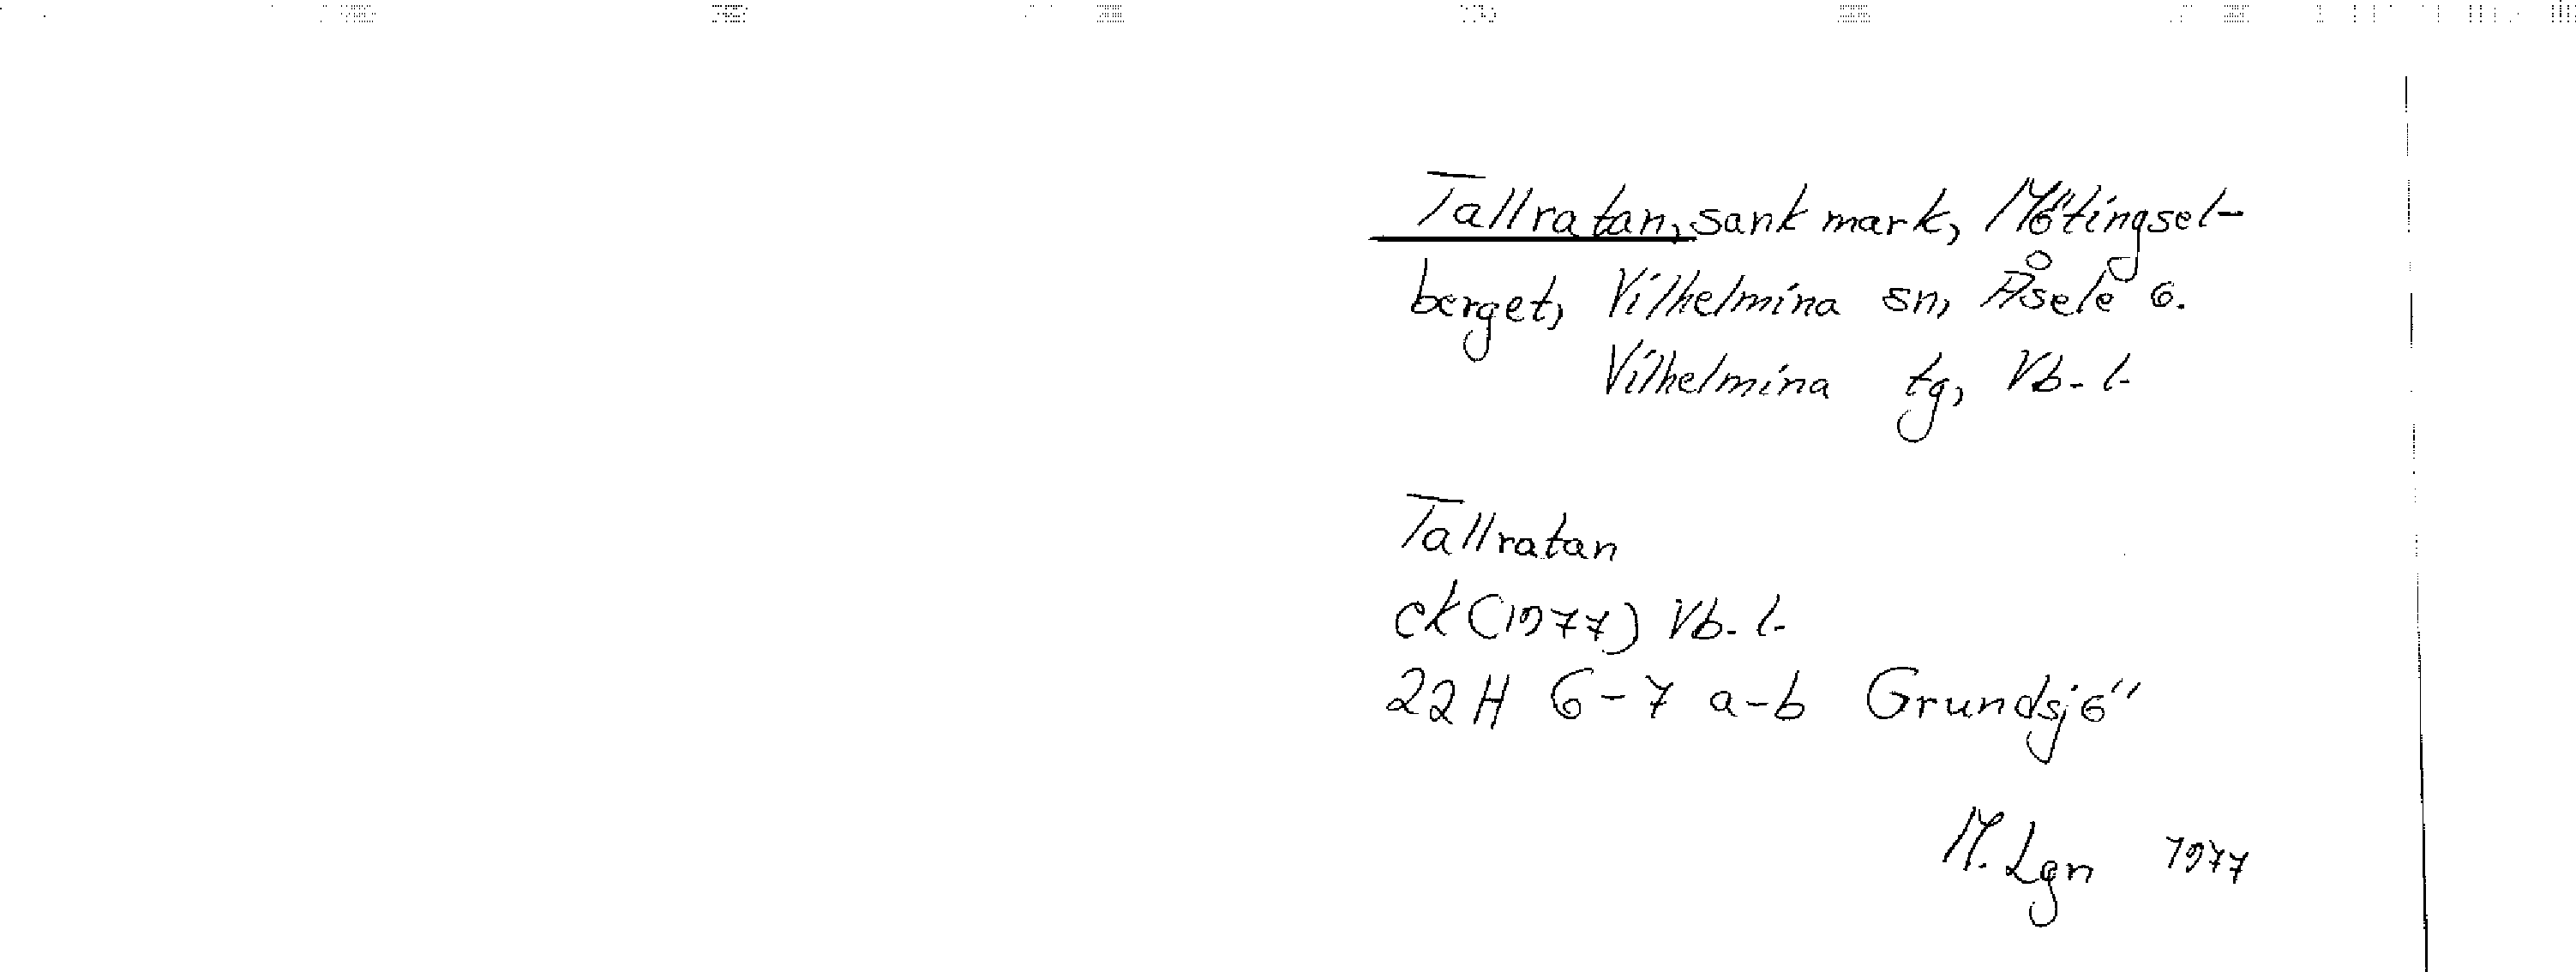 Tallratan, sank mark, Mötingsel-
berget, Vilhelmina sn, Åsele ö.
Vilhelmina tg, Vb. l.
Tallratan
ek (1977) Vb. l.
22 H 6-7 a-b Grundsjö
M. Lgn 1977